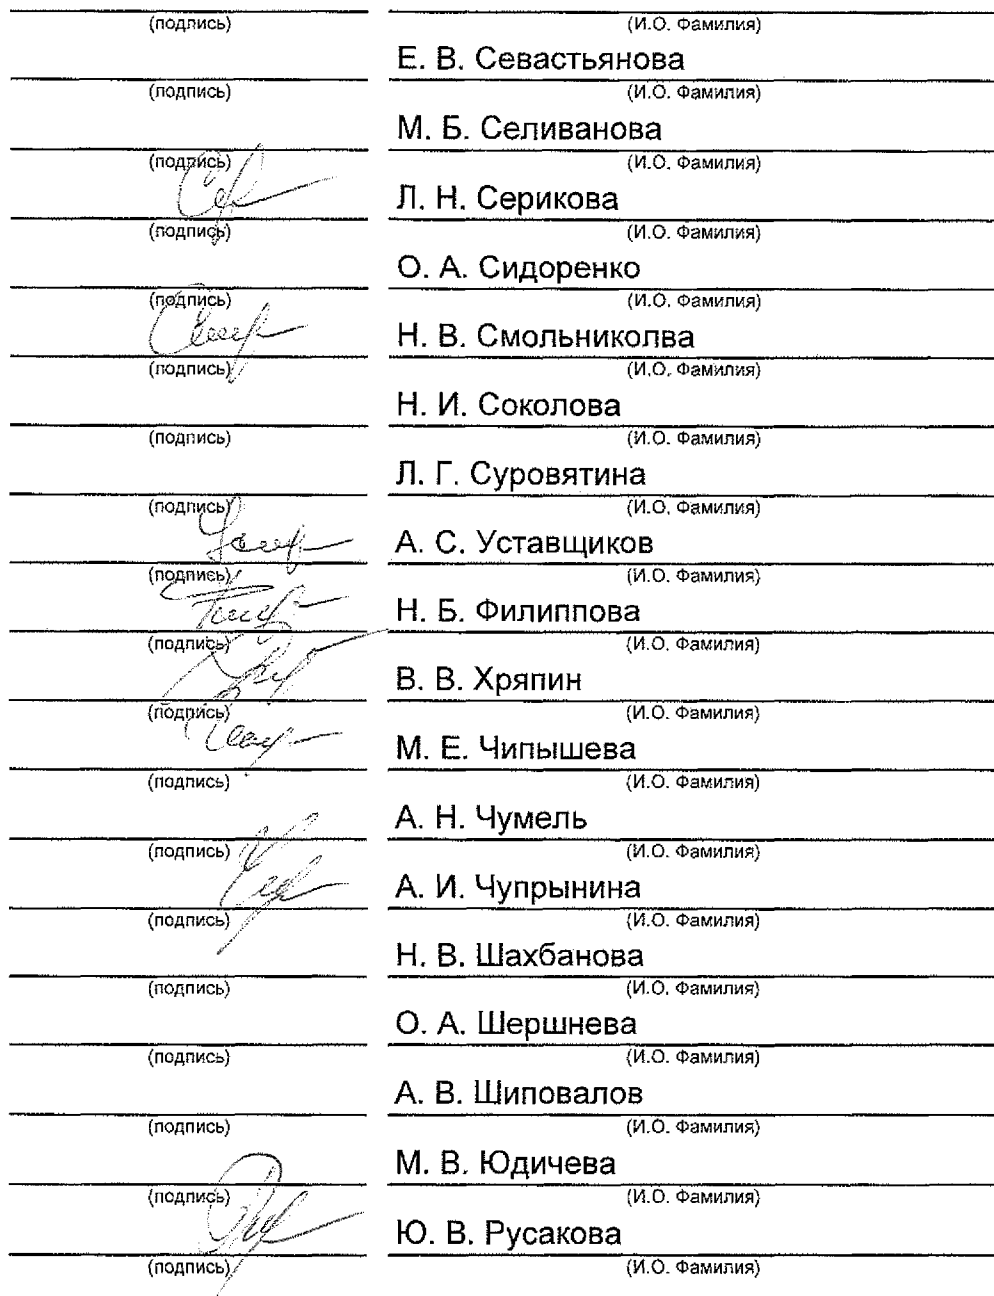 (подпись) (И.О. Фамилия)
Е. В. Севастьянова
(подпись) (И.О. Фамилия)
М. Б. Селиванова
(подпись) (И.О. Фамилия)
Л. Н. Серикова
(подпись) (И.О. Фамилия)
О. А. Сидоренко
(подпись) (И.О. Фамилия)
Н. В. Смольниколва
(подпись) (И.О. Фамилия)
Н. И. Соколова
(подпись) (И.О. Фамилия)
Л. Г. Суровятина
(подпись) (И.О. Фамилия)
А. С. Уставщиков
(подпись) (И.О. Фамилия)
Н. Б. Филиппова
(подпись) (И.О. Фамилия)
В. В. Хряпин
(подпись) (И.О. Фамилия)
М. Е. Чипышева
(подпись) (И.О. Фамилия)
А. Н. Чумель
(подпись) (И.О. Фамилия)
А. И. Чупрынина
(подпись) (И.О. Фамилия)
Н. В. Шахбанова
(подпись) (И.О. Фамилия)
О. А. Шершнева
(подпись) (И.О. Фамилия)
А. В. Шиповалов
(подпись) (И.О. Фамилия)
М. В. Юдичева
(подпись) (И.О. Фамилия)
Ю. В. Русакова
(подпись) (И.О. Фамилия)